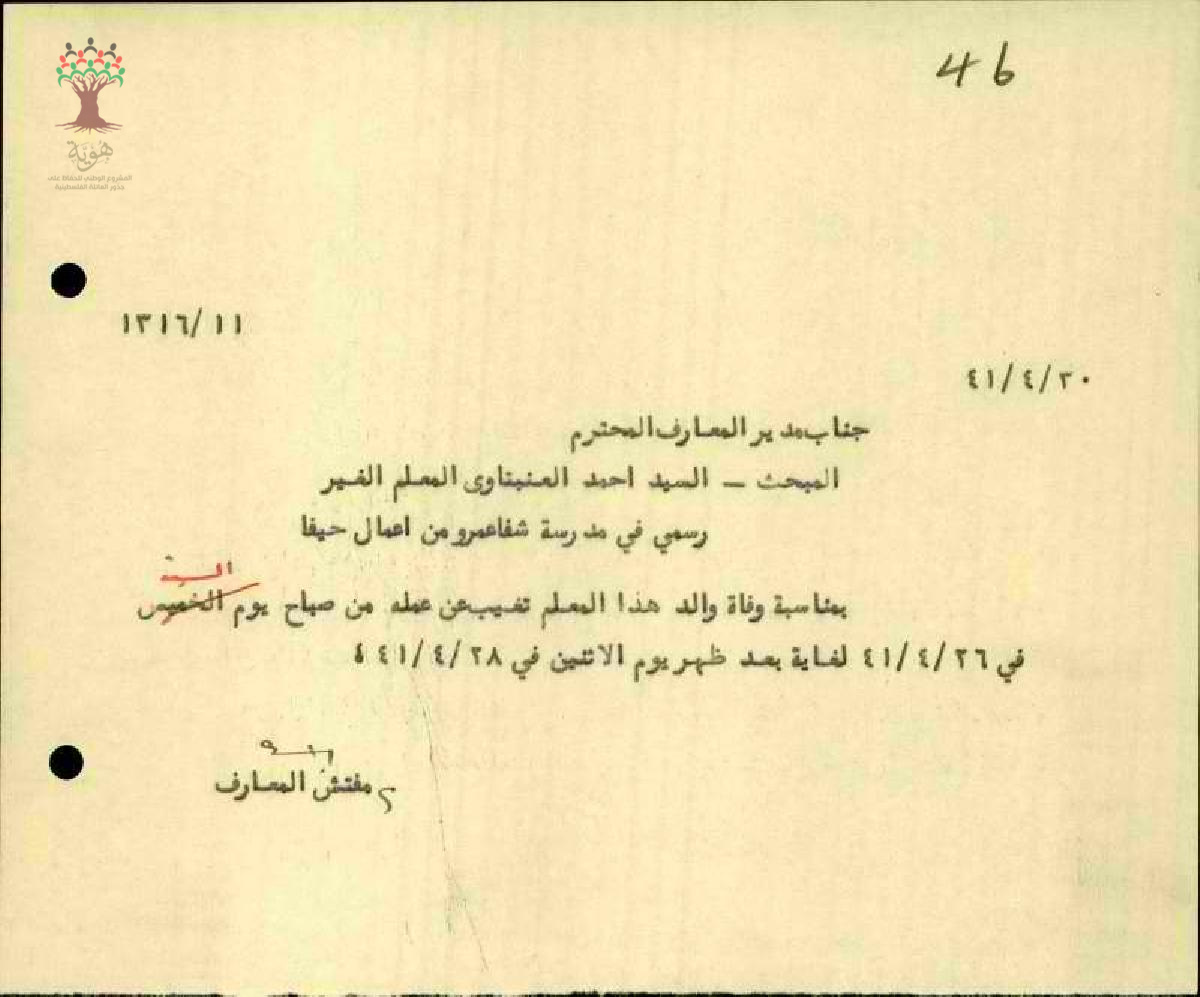 46
هوية
المشروع الوطني للحفاظ على
جذور العائلة الفلسطينية
١٣١٦/١١
٤١/٤/٣٠
جناب مدير المعارف المحترم
المبحث – السيد احمد العنبتاوى المعلم الغير
رسمي في مدرسة شفاعمرو من اعمال حيفا
السبت
بمناسبة وفاة والد هذا المعلم تغيب عن عمله من صباح يوم الخميس
في ٤١/٤/٢٦ لغاية بعد ظهر يوم الاثنين في ٤١/٤/٢٨ ٤
مفتش المعارف